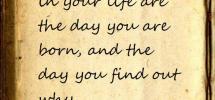 in your life are
the day you are
born, and the
day you find out
why.